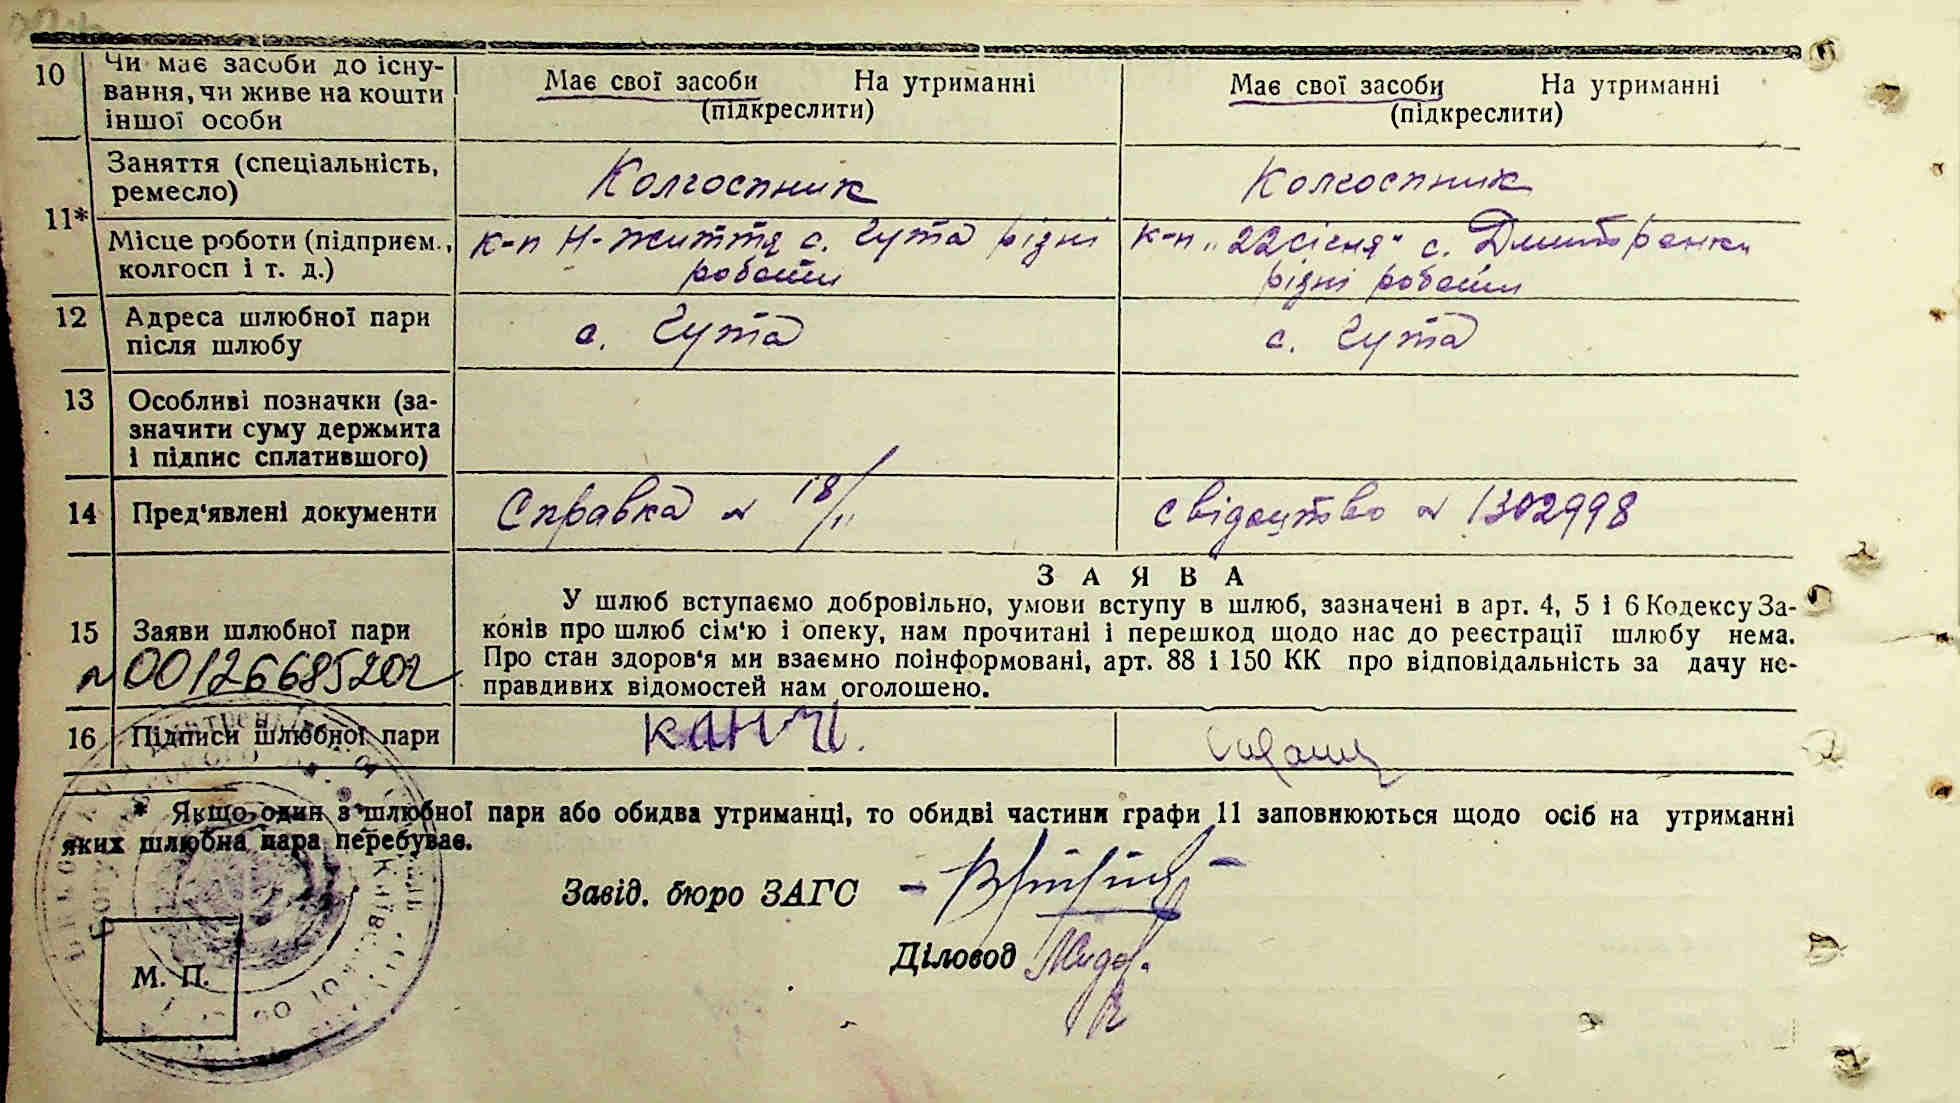 10 Чи має засоби до існу-
вання, чи живе на кошти
іншої особи
Має свої засоби На утриманні
(підкреслити)
Має свої засоби На утриманні
(підкреслити)
11* Заняття (спеціальність,
ремесло)
Колгоспник
Колгоспник
Місце роботи (підприєм.,
колгосп і т. д.)
к-п Н-життя с. Гута різні
роботи
к-п „22 січня" с.
різні роботи
12 Адреса шлюбної пари
після шлюбу
с. Гута
с. Гута
13 Особливі позначки (за-
значити суму держмита
і підпис сплатившого)
14 Пред'явлені документи
Справка N 18/11
свідоцтво N 1302998
15 Заяви шлюбної пари
N 00126685202
ЗАЯВА
У шлюб вступаємо добровільно, умови вступу в шлюб, зазначені в арт. 4, 5 і 6 Кодексу За-
конів про шлюб сім'ю і опеку, нам прочитані і перешкод щодо нас до реєстрації шлюбу нема.
Про стан здоров'я ми взаємно поінформовані, арт. 88 і 150 КК про відповідальність за дачу не-
правдивих відомостей нам оголошено.
16 Підписи шлюбної пари
* Якщо один з шлюбної пари або обидва утриманці, то обидві частини графи 11 заповнюються щодо осіб на утриманні
яких шлюбна пара перебуває.
Завід. бюро ЗАГС
Діловод
М. П.